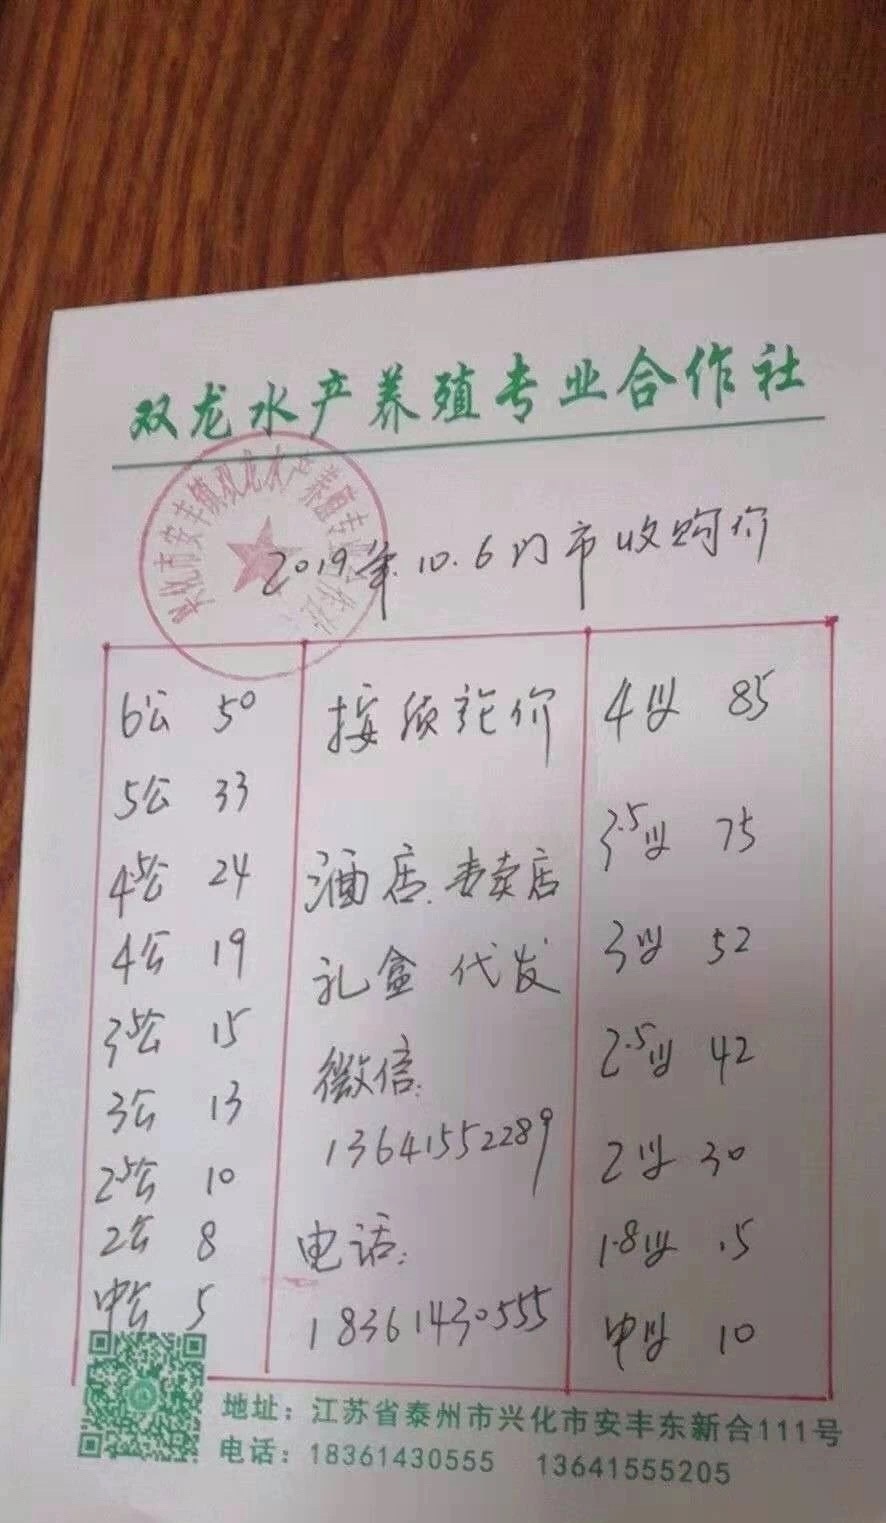 双龙水产养殖专业合作社
兴化市安丰镇双龙水产养殖专业合作社
2019年.10.6门市收购价
6公 50
5公 33
4.5公 24
4公 19
3.5公 15
3公 13
2.5公 10
2公 8
中公 5
按质论价
酒店.专卖店
礼盒 代发
微信:
13641552289
电话:
18361430555
4母 85
3.5母 75
3母 52
2.5母 42
2母 30
1.8母 15
中母 10
地址：江苏省泰州市兴化市安丰东新合111号
电话：18361430555 13641555205